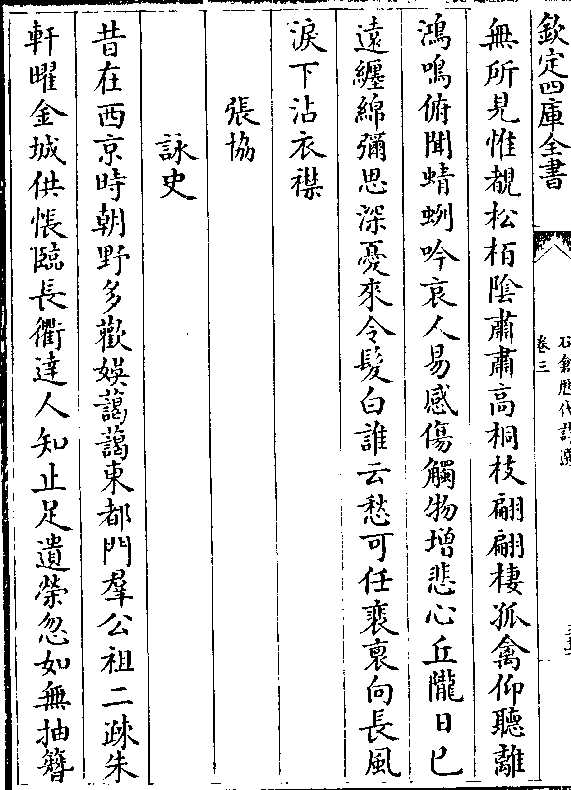 欽定四庫全書
石倉歴代詩選
卷三
無所見惟覩松栢陰肅肅高桐枝翩翩棲孤禽仰聽離
鴻鳴俯聞蜻蛚吟哀人易感傷觸物增悲心丘隴日已
遠纏綿彌思深憂來令髮白誰云愁可任裴裏向長風
淚下沾衣襟
張協
詠史
昔在西京時朝野多歡娛藹藹東都門羣公祖二疎朱
軒曜金城供悵臨長衢達人知止足遺榮忽如無抽簪